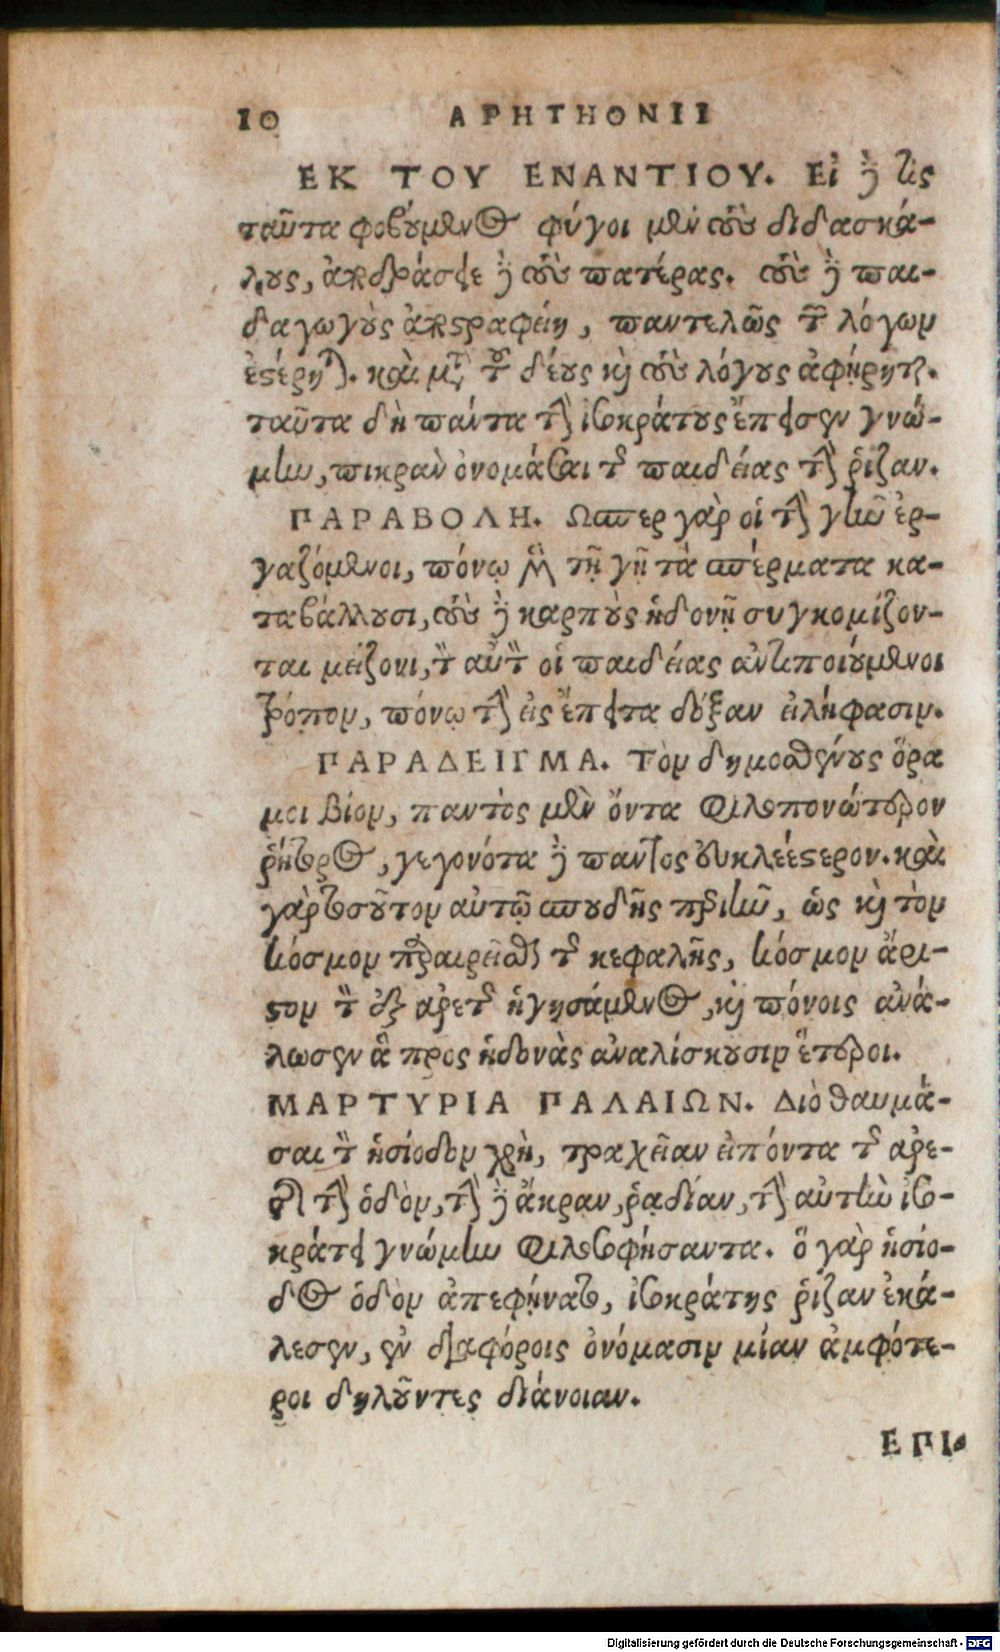 10 ΑΡΗΤΗΟΝΙΙ
ΕΚ ΤΟΥ ΕΝΑΝΤΙΟΥ. Εἰ δὲ τις
ταῦτα φοβούμενος φύγοι μὲν τοὺς διδασκά-
λους, ἀποδράσειε δὲ τοὺς πατέρας. τοὺς δὲ παι-
δαγωγοὺς ἀποστραφείη, παντελῶς τῶν λόγων
ἐστέρηται. καὶ μετὰ τοῦ δέους καὶ τοὺς λόγους ἀφῄρηται.
ταῦτα δὴ πάντα τὴν ἰσοκράτους ἔπεισεν γνώ-
μην, πικρὰν ὀνομάσαι τῆς παιδείας τὴν ῥίζαν.
ΠΑΡΑΒΟΛΗ. Ωσπερ γὰρ οἱ τὴν γῆν ἐρ-
γαζόμενοι, πόνῳ μὲν τῇ γῇ τὰ σπέρματα κα-
ταβάλλουσι, τοὺς δὲ καρποὺς ἡδονῇ συγκομίζον-
ται μείζονι, τὸν αὐτὸν οἱ παιδείας ἀντιποιούμενοι
τρόπον, πόνῳ τὴν εἰς ἔπειτα δόξαν εἰλήφασιν.
ΠΑΡΑΔΕΙΓΜΑ. Τὸν δημοσθένους ὅρα
μοι βίον, παντὸς μὲν ὄντα φιλοπονώτερον
ῥήτορος, γεγονότα δὲ παντὸς εὐκλεέστερον. καὶ
γὰρ τοσοῦτον αὐτῷ σπουδῆς περιῆν, ὡς καὶ τὸν
κόσμον περιαιρεῖσθαι τῆς κεφαλῆς, κόσμον ἄρι-
στον τὸν ἐξ ἀρετῆς ἡγησάμενος, καὶ πόνοις ἀνά-
λωσεν ἃ προς ἡδονὰς ἀναλίσκουσιν ἕτεροι.
ΜΑΡΤΥΡΙΑ ΠΑΛΑΙΩΝ. Διὸ θαυμά-
σαι τὸν ἡσίοδον χρὴ, τραχεῖαν εἰπόντα τῆς ἀρε-
τῆς τὴν ὁδὸν, τὴν δὲ ἄκραν, ῥᾳδίαν, τὴν αὐτὴν ἰσο-
κράτει γνώμην φιλοσοφήσαντα. ὃ γὰρ ἡσίο-
δος ὁδὸν ἀπεφήνατο, ἰσοκράτης ῥίζαν ἐκά-
λεσεν, ἐν διαφόροις ὀνόμασιν μίαν ἀμφότε-
ροι δηλοῦντες διάνοιαν.
ΕΠΙ-
Digitalisierung gefördert durch die Deutsche Forschungsgemeinschaft - DFG